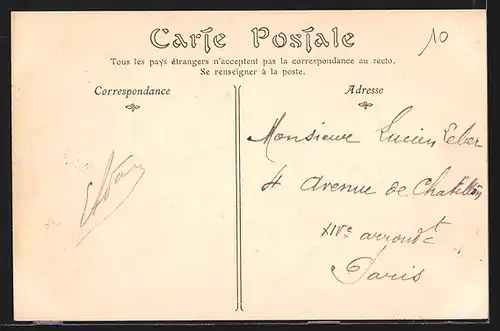 Carte Postale
10
Tous les pays étrangers n'acceptent pas la correspondance au recto.
Se renseigner à la poste.
Correspondance
Adresse
Monsieur Lucien Leber
4 Avenue de Chatillon
XIVe arrondt
Paris